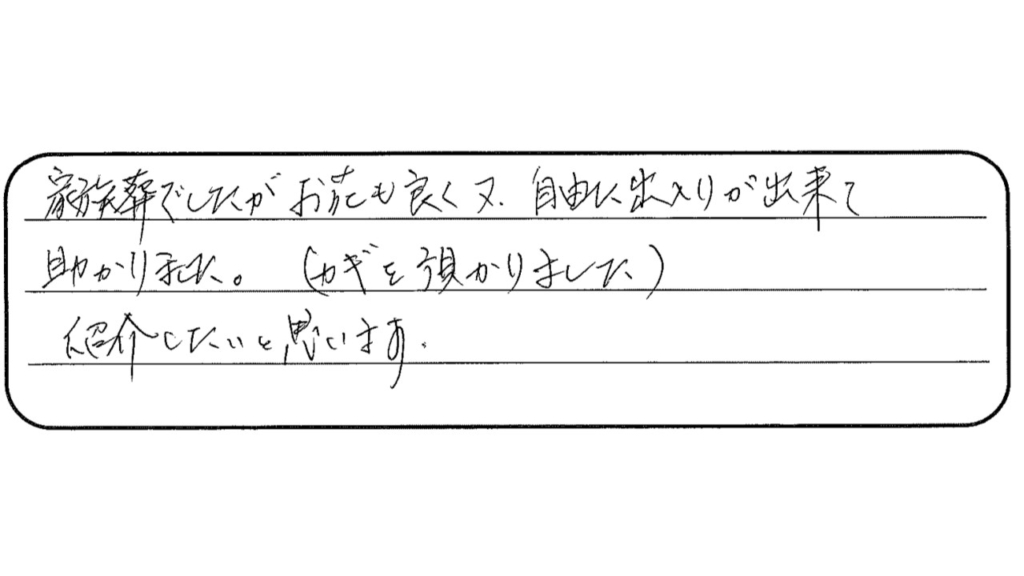 家族葬でしたがお花も良く又、自由に出入りが出来て
助かりました。（カギを預かりました）
紹介したいと思います。